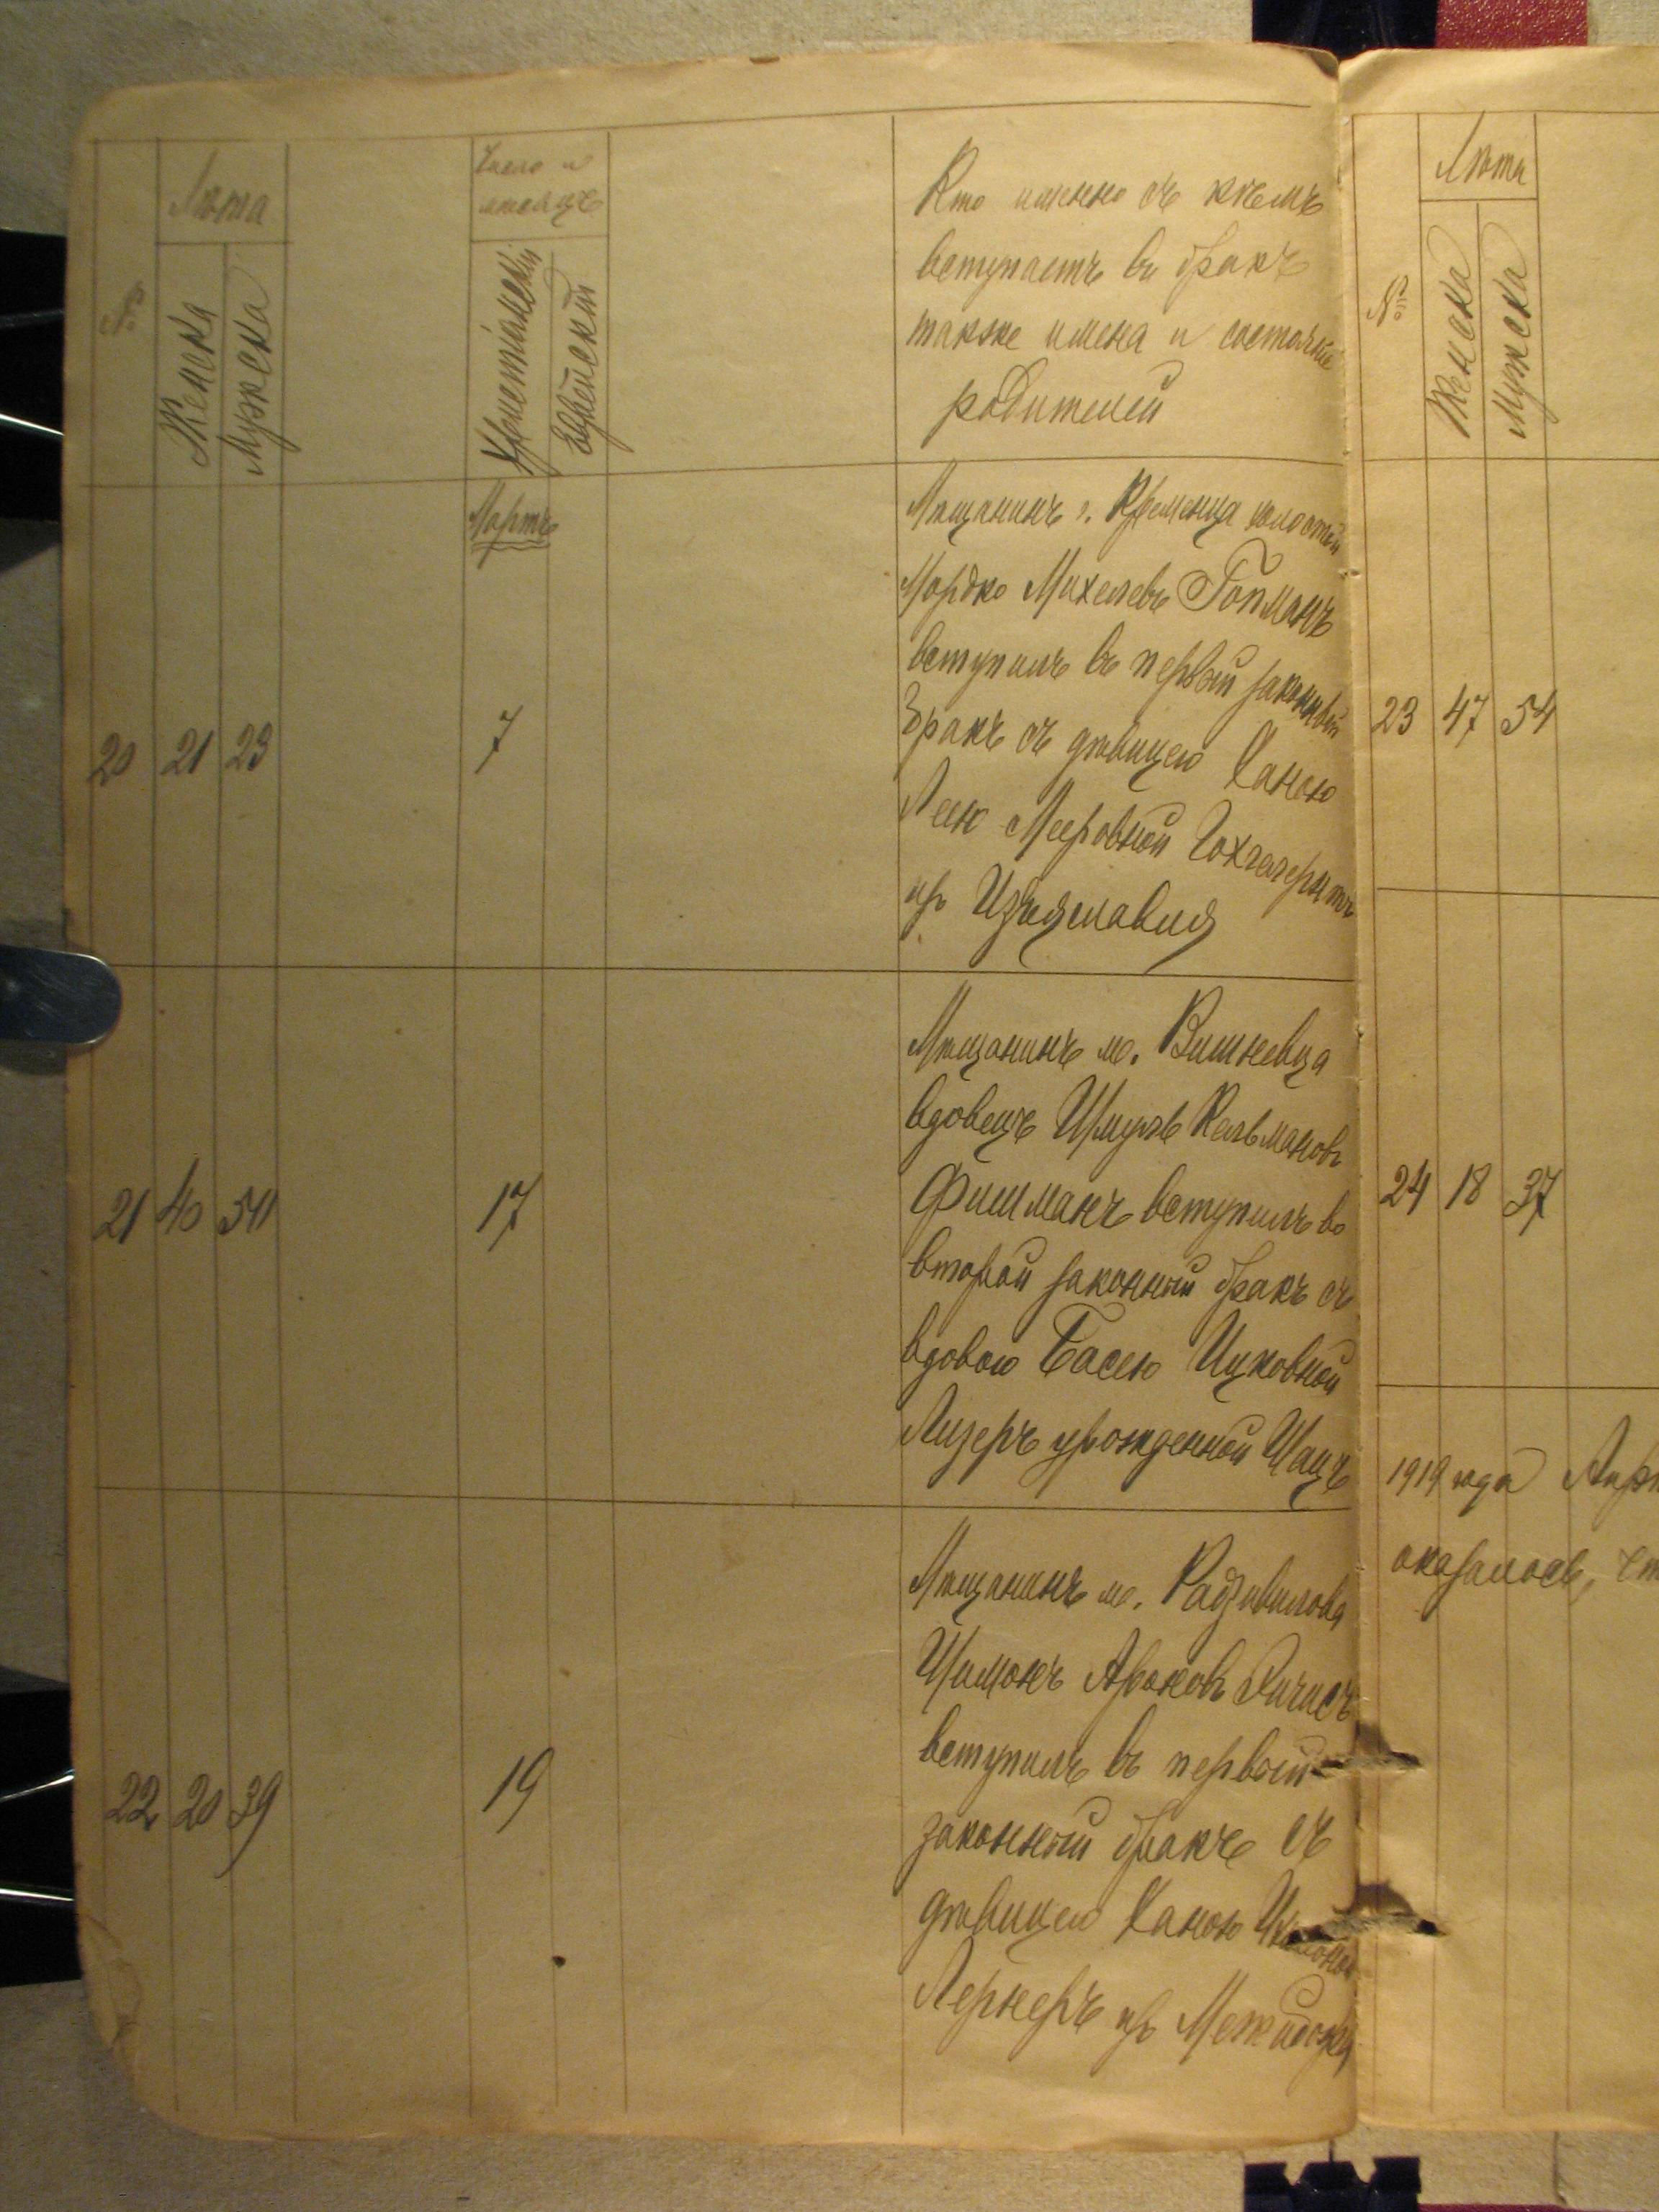 №
Лѣта
Женска
Мужеска
Число и
мѣсяцъ
Христіанскій
Еврейскій
Кто именно съ кѣмъ
вступаетъ въ бракъ
также имена и состояніе
родителей
Мартъ
20 21 23 7
Мѣщанинъ г. Кременца холостой
Мордко Михелевъ Гопманъ
вступилъ въ первый законный
бракъ съ дѣвицею Ханою
Леею Мееровной
изъ Изъяславля
21 40 54 17
Мѣщанинъ м. Вишневца
вдовецъ Шмуль Кельмановъ
Фишманъ вступилъ во
второй законный бракъ съ
вдовою Басею Ицковной
Лизеръ урожденной Шацъ
22 20 39 19
Мѣщанинъ м. Радзивилова
Шимонъ Ароновъ
вступилъ въ первый
законный бракъ съ
дѣвицею Ханою
Лернеръ изъ
№
Лѣта
Женска
Мужеска
23 47 54
24 18 37
1919 года
оказалось,